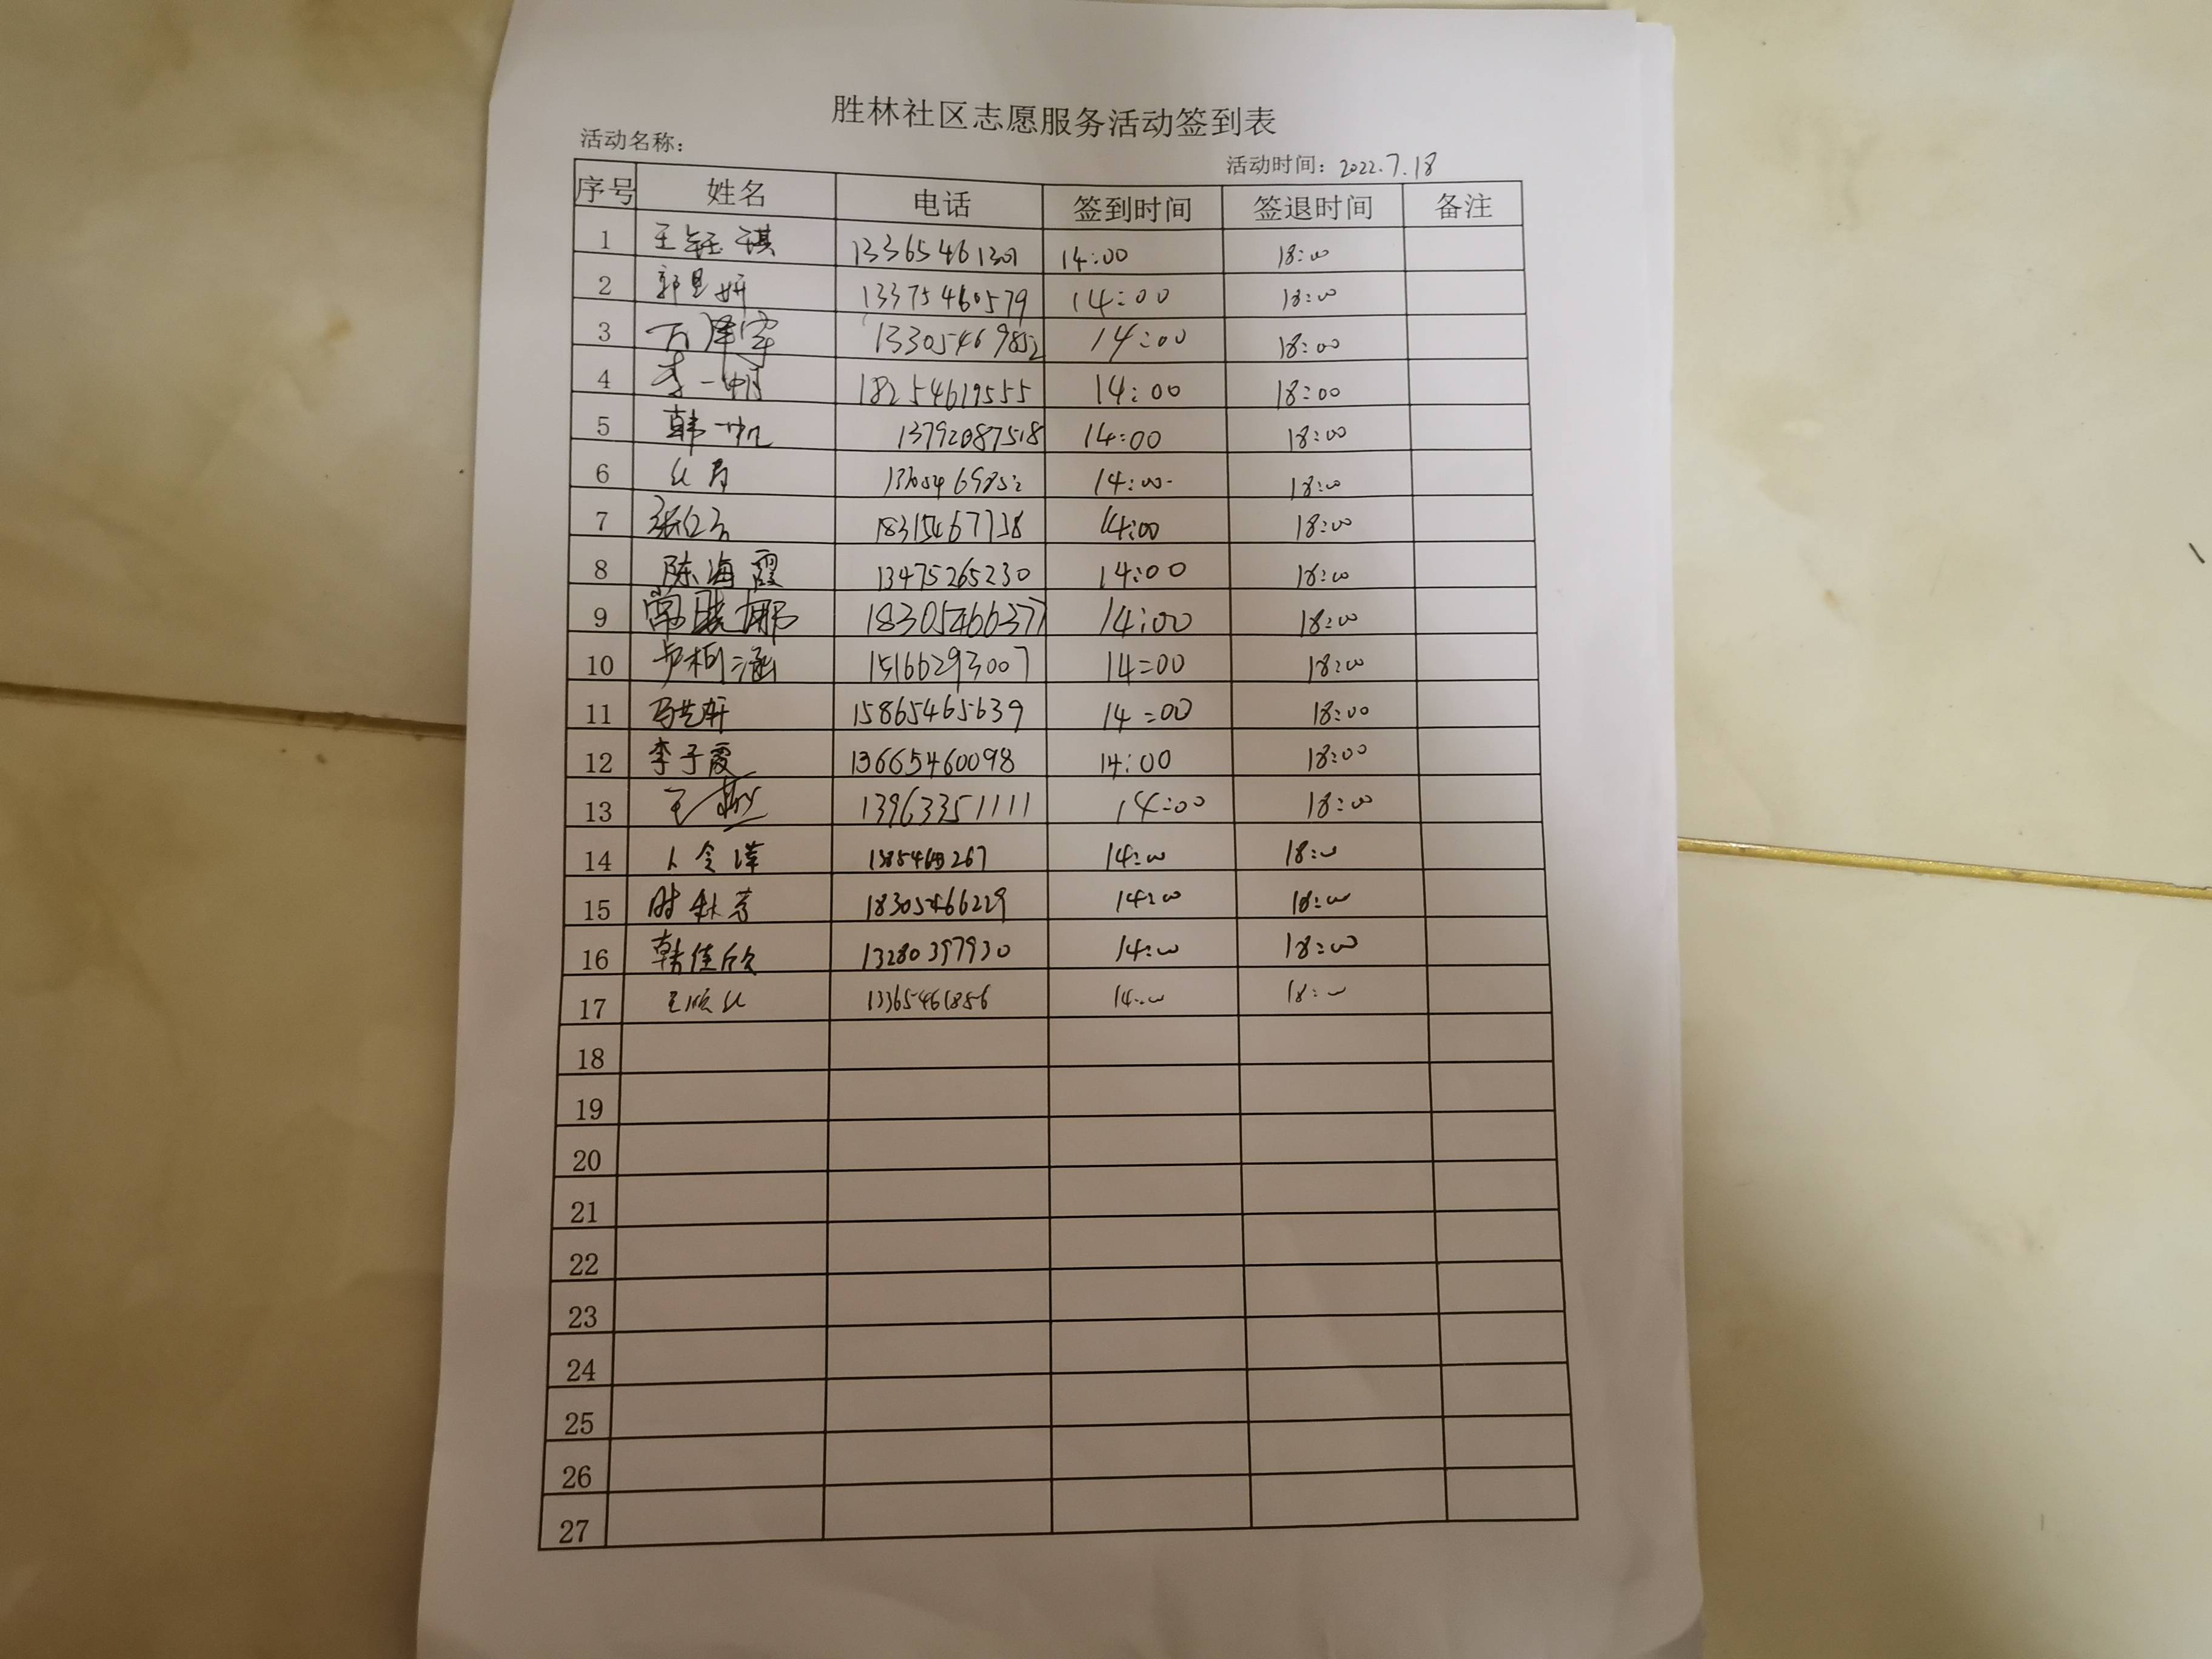 胜林社区志愿服务活动签到表
活动名称：
活动时间：2022.7.18
序号 姓名 电话 签到时间 签退时间 备注
1 王钰琪 13365461301 14:00 18:00
2 郭昱妍 13375460579 14:00 18:00
3 万泽宇 13305469852 14:00 18:00
4 李一帆 18254619555 14:00 18:00
5 韩一帆 13792087518 14:00 18:00
6 14:00 18:00
7 14:00 18:00
8 陈海霞 13475265230 14:00 18:00
9 常晓娜 18305466377 14:00 18:00
10 卢柏涵 15166293007 14:00 18:00
11 马艺轩 15865465639 14:00 18:00
12 李子霞 13665460098 14:00 18:00
13 王 13963351111 14:00 18:00
14 14:00 18:00
15 时秋芳 18305466229 14:00 18:00
16 韩佳欣 13280397930 14:00 18:00
17 13365461856 14:00 18:00
18
19
20
21
22
23
24
25
26
27